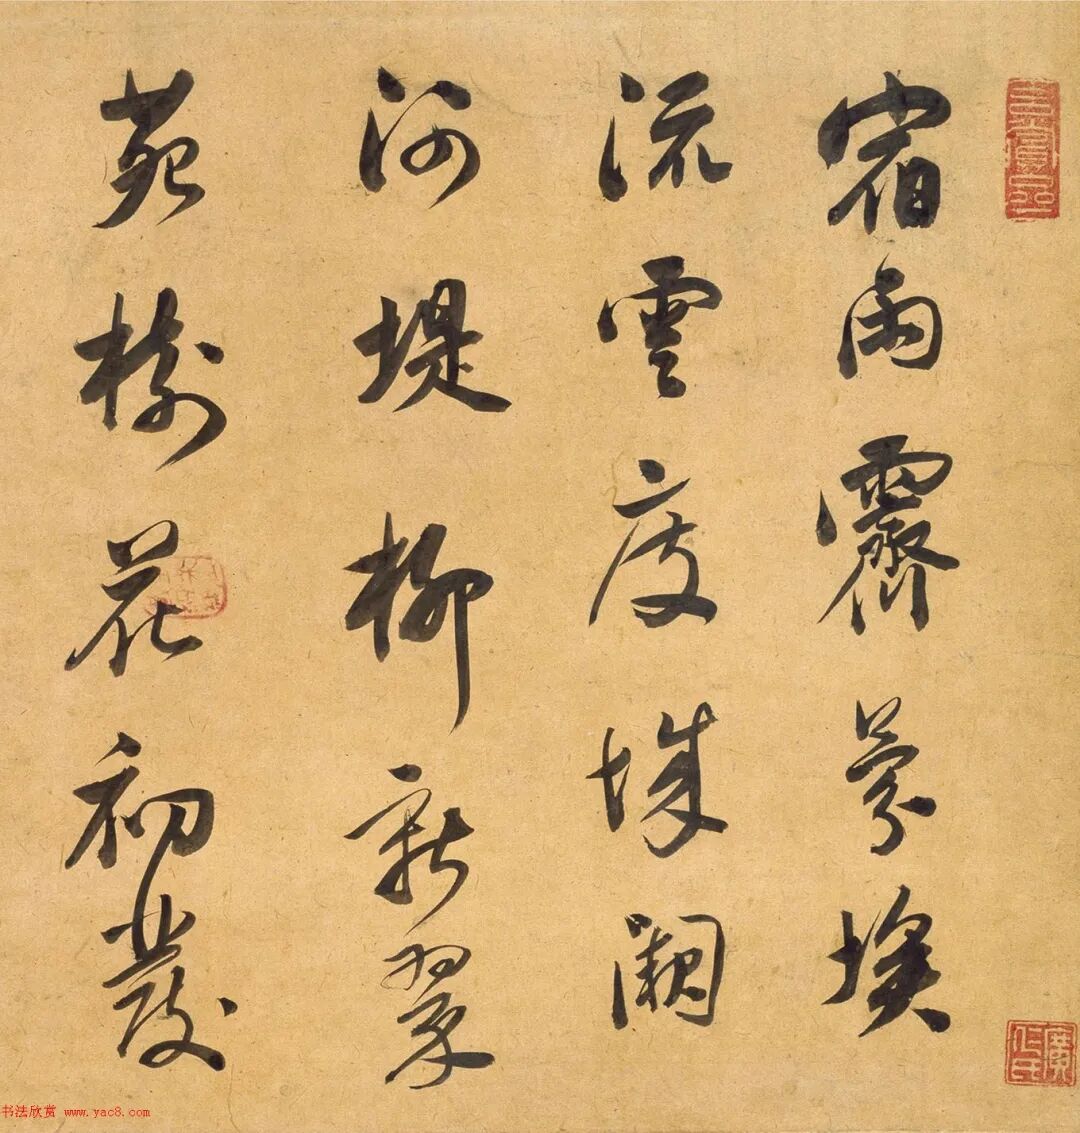 宿雨霽芬埃
流雲度城闕
河堤柳新翠
苑樹花初發
书法欣赏 www.yac8.com